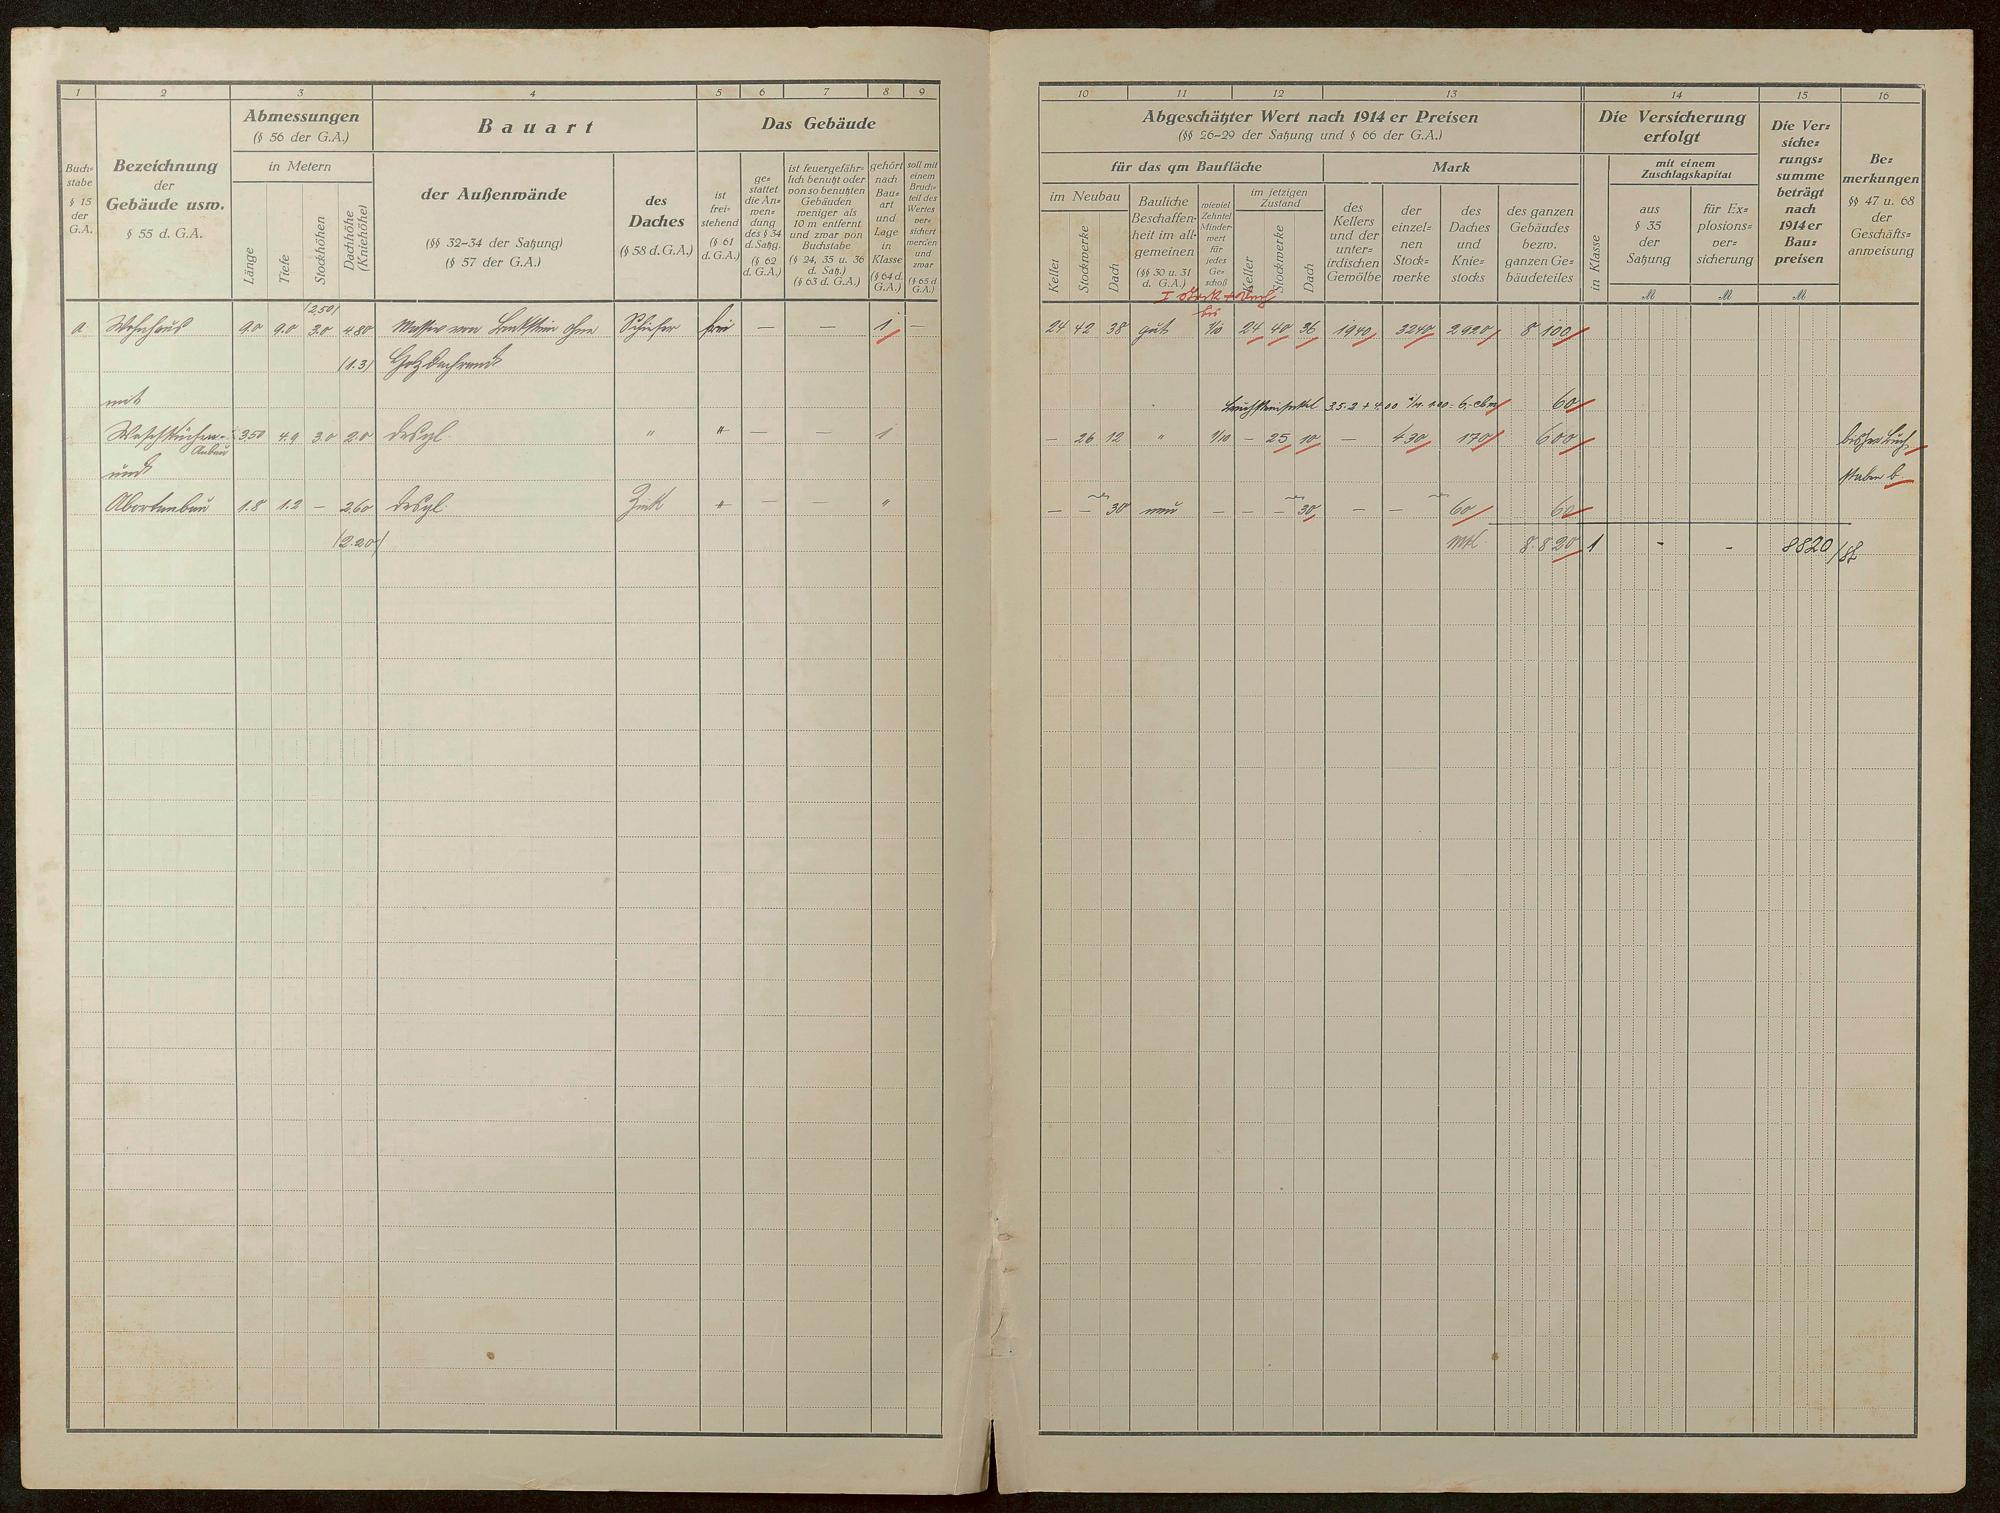 1 2 3 4 5 6 7 8 9
Buch=
stabe
§ 15
der
G.A.
Bezeichnung
der
Gebäude usw.
§ 55 d. G.A.
Abmessungen
(§ 56 der G.A.)
in Metern
Länge
Tiefe
Stockhöhen
Dachhöhe
(Kniehöhe)
Bauart
der Außenwände
(§§ 32-34 der Satzung)
(§ 57 der G.A.)
des
Daches
(§ 58 d.G.A.)
Das Gebäude
ist
frei=
stehend
(§ 61
d. G.A.)
ge=
stattet
die An=
wen=
dung
des § 34
d. Satzg.
(§ 62
d. G.A.)
ist feuergefähr=
lich benutzt oder
von so benutzten
Gebäuden
weniger als
10 m entfernt
und zwar von
Buchstabe
(§ 24, 35 u. 36
d. Satz.)
(§ 63 d. G.A.)
gehört
nach
Bau=
art
und
Lage
in
Klasse
(§ 64 d.
G.A.)
soll mit
einem
Bruch=
teil des
Wertes
ver=
sichert
werden
und
zwar
(§ 65 d.
G.A.)
(2,50)
a. Wohnhaus 9.0 9.0 3.0 4.80 Massiv von Bruchstein ohne Schiefer frei — — 1 —
(1.3) Holzdachrand
mit
Waschküchen= 3.50 4.9 3.0 2.0 desgl. " " — — 1
Anbau
und
Abortanbau 1.8 1.2 — 2,60 desgl. Zink " — — "
(2.20)
10 11 12 13 14 15 16
Abgeschätzter Wert nach 1914 er Preisen
(§§ 26-29 der Satzung und § 66 der G.A.)
für das qm Baufläche
im Neubau
Keller
Stockwerke
Dach
Bauliche
Beschaffen=
heit im all=
gemeinen
(§§ 30 u. 31
d. G.A.)
wieviel
Zehntel
Minder=
wert
für
jedes
Ge=
schoß
im jetzigen
Zustand
Keller
Stockwerke
Dach
Mark
des
Kellers
und der
unter=
irdischen
Gewölbe
der
einzel=
nen
Stock=
werke
des
Daches
und
Knie=
stocks
des ganzen
Gebäudes
bezw.
ganzen Ge=
bäudeteiles
Die Versicherung
erfolgt
in Klasse
mit einem
Zuschlagskapital
aus
§ 35
der
Satzung
für Ex=
plosions=
ver=
sicherung
Die Ver=
siche=
rungs=
summe
beträgt
nach
1914 er
Bau=
preisen
Be=
merkungen
§§ 47 u. 68
der
Geschäfts=
anweisung
ℳ ℳ ℳ
I Stock + Dach
bis
24 42 38 gut 1/10 24 40 36 1940 3240 2920 8 100
60
— 26 12 " 1/10 — 25 10 — 430 170 600 bisher Buch
staben b.
— — 30 neu — — — 30 — — 60 60
8.820 1 - - 8820